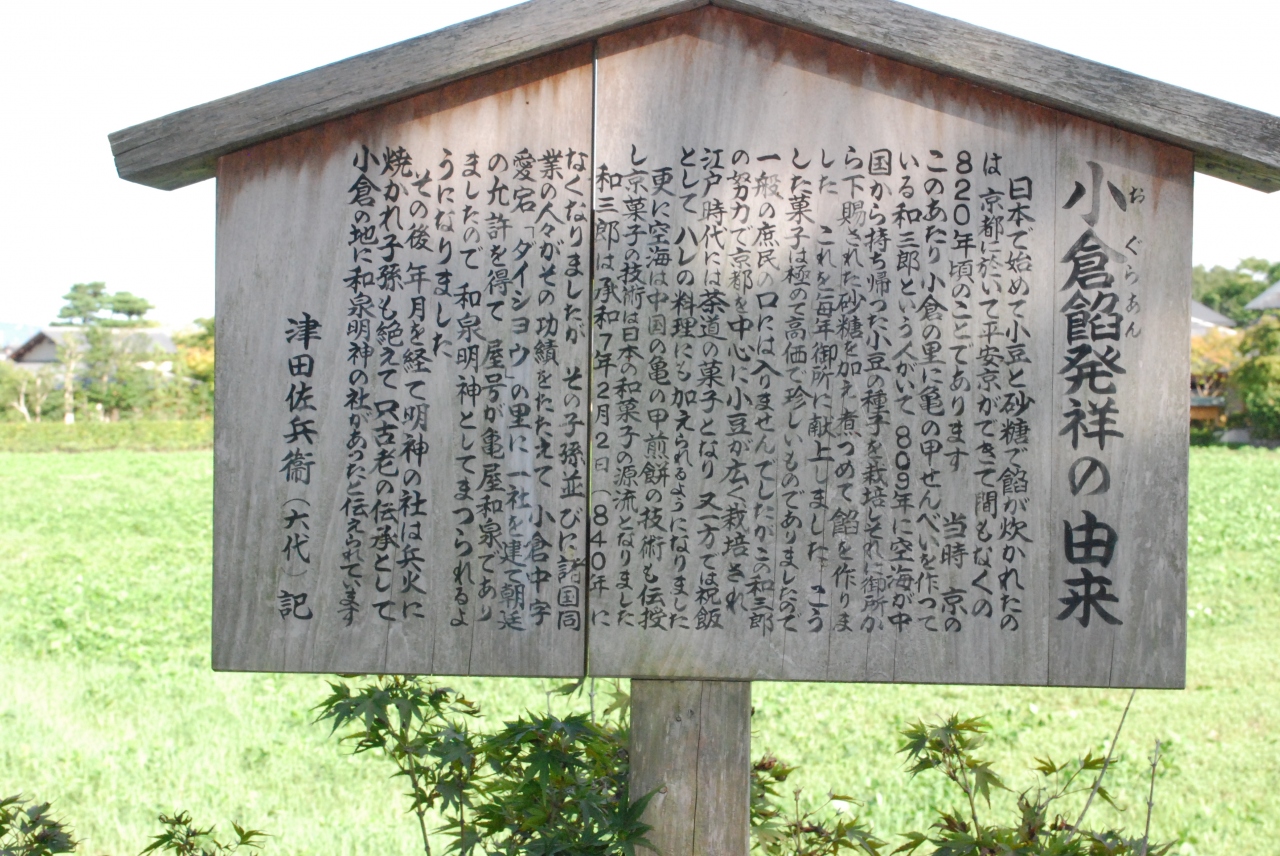 小倉餡発祥の由来
おぐらあん
日本で始めて小豆と砂糖で餡が炊かれたの
は 京都に於いて平安京ができて間もなくの
820年頃のことてあります 当時 京の
このあたり小倉の里に亀の甲せんべいを作って
いる和三郎という人がいて 809年に空海が中
国から持ち帰った小豆の種子を栽培しそれに御所か
ら下賜された砂糖を加え煮つめて餡を作りま
した これを毎年御所に献上しました こう
した菓子は極めて高価て珍しいものでありましたので
一般の庶民の口には入りませんでしたがこの和三郎
の努力で京都を中心に小豆が広く栽培され
江戸時代には茶道の菓子となり 又一方ては祝飯
として ハレの料理にも加えられるようになりました
更に空海は中国の亀の甲煎餅の技術も伝授
し京菓子の技術は日本の和菓子の源流となりました
和三郎は承和7年2月2日(840年)に
なくなりましたが その子孫並びに諸国同
業の人々がその功績をたたえて 小倉中字
愛宕「ダイショウ」の里に一社を建て朝廷
の允許を得て 屋号が亀屋和泉であり
ましたので 和泉明神としてまつられるよ
うになりました
その後 年月を経て明神の社は兵火に
焼かれ子孫も絶えて 只古老の伝承として
小倉の地に和泉明神の社があったと伝えられています
津田佐兵衞(六代)記